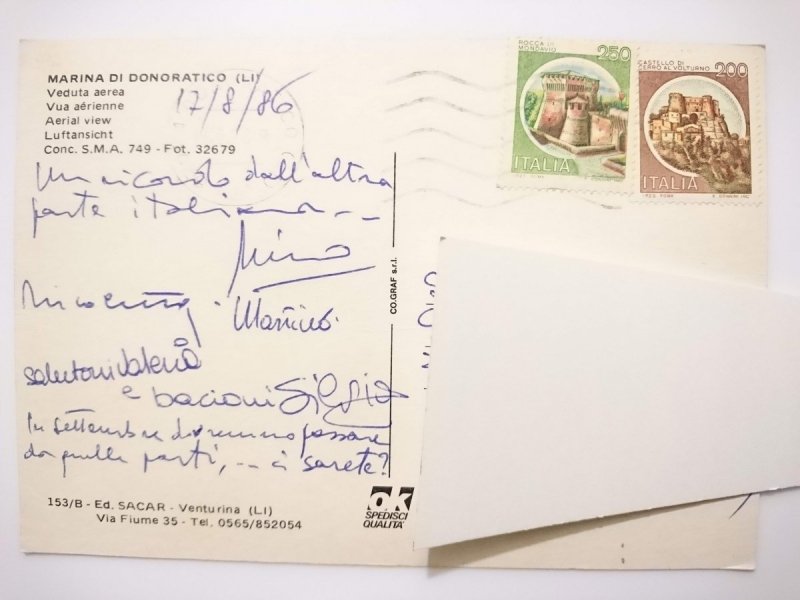 MARINA DI DONORATICO (LI)
Veduta aerea
Vua aérienne
Aerial view
Luftansicht
Conc. S.M.A. 749 - Fot. 32679
17/8/86
Un ricordo dall'altra
parte italiana...
Nino
salutoni Valeria
e bacioni Silvia
In settembre dovremmo passare
da quelle parti, ... ci sarete?
153/B - Ed. SACAR - Venturina (LI)
Via Fiume 35 - Tel. 0565/852054
CO.GRAF s.r.l.
ok
SPEDISCI
QUALITA'
ROCCA DI
MONDAVIO
250
ITALIA
CASTELLO DI
CERRO AL VOLTURNO
200
ITALIA